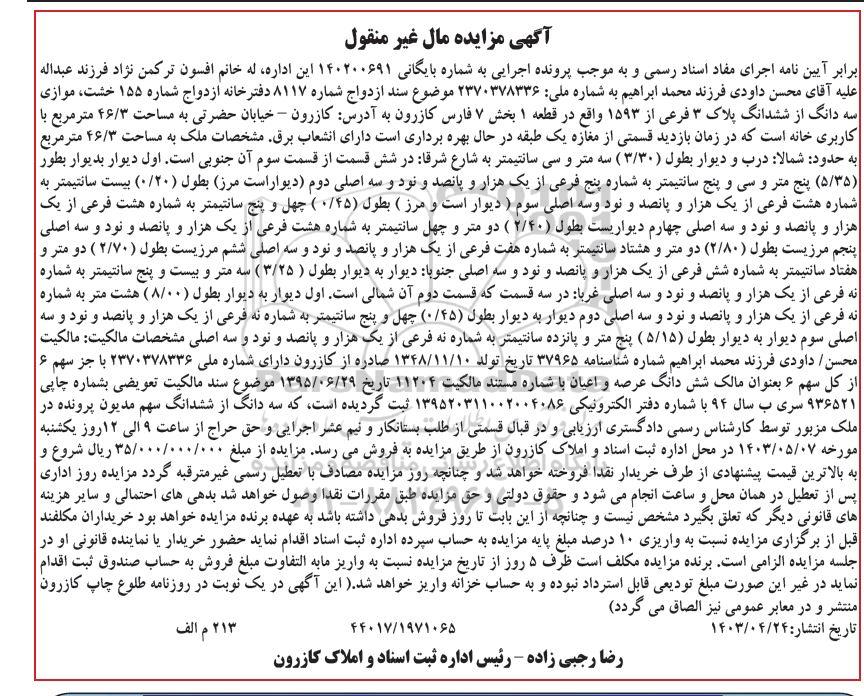 آگهی مزایده مال غیر منقول
برابر آیین نامه اجرای مفاد اسناد رسمی و به موجب پرونده اجرایی به شماره بایگانی ۱۴۰۲۰۰۶۹۱ این اداره، له خانم افسون ترکمن نژاد فرزند عبداله
علیه آقای محسن داودی فرزند محمد ابراهیم به شماره ملی: ۲۳۷۰۳۷۸۳۳۶ موضوع سند ازدواج شماره ۸۱۱۷ دفترخانه ازدواج شماره ۱۵۵ خشت، موازی
سه دانگ از ششدانگ پلاک ۳ فرعی از ۱۵۹۳ واقع در قطعه ۱ بخش ۷ فارس کازرون به آدرس: کازرون – خیابان حضرتی به مساحت ۴۶/۳ مترمربع با
کاربری خانه است که در زمان بازدید قسمتی از مغازه یک طبقه در حال بهره برداری است دارای انشعاب برق. مشخصات ملک به مساحت ۴۶/۳ مترمربع
به حدود: شمالا: درب و دیوار بطول (۳/۳۰) سه متر و سی سانتیمتر به شارع شرقا: در شش قسمت از قسمت سوم آن جنوبی است. اول دیوار بدیوار بطور
(۵/۳۵) پنج متر و سی و پنج سانتیمتر به شماره پنج فرعی از یک هزار و پانصد و نود و سه اصلی دوم (دیواراست مرز) بطول (۰/۲۰) بیست سانتیمتر به
شماره هشت فرعی از یک هزار و پانصد و نود وسه اصلی سوم( دیوار است و مرز ) بطول (۰/۴۵ ) چهل و پنج سانتیمتر به شماره هشت فرعی از یک
هزار و پانصد و نود و سه اصلی چهارم دیواریست بطول (۲/۴۰ ) دو متر و چهل سانتیمتر به شماره هشت فرعی از یک هزار و پانصد و نود و سه اصلی
پنجم مرزیست بطول (۲/۸۰) دو متر و هشتاد سانتیمتر به شماره هفت فرعی از یک هزار و پانصد و نود و سه اصلی ششم مرزیست بطول (۲/۷۰ ) دو متر و
هفتاد سانتیمتر به شماره شش فرعی از یک هزار و پانصد و نود و سه اصلی جنوبا: دیوار به دیوار بطول ( ۳/۲۵ ) سه متر و بیست و پنج سانتیمتر به شماره
نه فرعی از یک هزار و پانصد و نود و سه اصلی غربا: در سه قسمت که قسمت دوم آن شمالی است. اول دیوار به دیوار بطول (۸/۰۰ ) هشت متر به شماره
نه فرعی از یک هزار و پانصد و نود و سه اصلی دوم دیوار به دیوار بطول (۰/۴۵) چهل و پنج سانتیمتر به شماره نه فرعی از یک هزار و پانصد و نود و سه
اصلی سوم دیوار به دیوار بطول (۵/۱۵ ) پنج متر و پانزده سانتیمتر به شماره نه فرعی از یک هزار و پانصد و نود و سه اصلی مشخصات مالکیت: مالکیت
محسن/ داودی فرزند محمد ابراهیم شماره شناسنامه ۳۷۹۶۵ تاریخ تولد ۱۳۴۸/۱۱/۱۰ صادره از کازرون دارای شماره ملی ۲۳۷۰۳۷۸۳۳۶ با جز سهم ۶
از کل سهم ۶ بعنوان مالک شش دانگ عرصه و اعیان با شماره مستند مالکیت ۱۱۲۰۴ تاریخ ۱۳۹۵/۰۶/۲۹ موضوع سند مالکیت تعویضی بشماره چاپی
۹۳۶۵۲۱ سری ب سال ۹۴ با شماره دفتر الکترونیکی ۱۳۹۵۲۰۳۱۱۰۰۲۰۰۴۰۸۶ ثبت گردیده است، که سه دانگ از ششدانگ سهم مدیون پرونده در
ملک مزبور توسط کارشناس رسمی دادگستری ارزیابی و در قبال قسمتی از طلب بستانکار و نیم عشر اجرایی و حق حراج از ساعت ۹ الی ۱۲روز یکشنبه
مورخه ۱۴۰۳/۰۵/۰۷ در محل اداره ثبت اسناد و املاک کازرون از طریق مزایده به فروش می رسد. مزایده از مبلغ ۳۵/۰۰۰/۰۰۰/۰۰۰ ریال شروع و
به بالاترین قیمت پیشنهادی از طرف خریدار نقدا فروخته خواهد شد و چنانچه روز مزایده مصادف با تعطیل رسمی غیرمترقبه گردد مزایده روز اداری
پس از تعطیل در همان محل و ساعت انجام می شود و حقوق دولتی و حق مزایده طبق مقررات نقدا وصول خواهد شد بدهی های احتمالی و سایر هزینه
های قانونی دیگر که تعلق بگیرد مشخص نیست و چنانچه از این بابت تا روز فروش بدهی داشته باشد به عهده برنده مزایده خواهد بود خریداران مکلفند
قبل از برگزاری مزایده نسبت به واریزی ۱۰ درصد مبلغ پایه مزایده به حساب سپرده اداره ثبت اسناد اقدام نماید حضور خریدار یا نماینده قانونی او در
جلسه مزایده الزامی است. برنده مزایده مکلف است ظرف ۵ روز از تاریخ مزایده نسبت به واریز مابه التفاوت مبلغ فروش به حساب صندوق ثبت اقدام
نماید در غیر این صورت مبلغ تودیعی قابل استرداد نبوده و به حساب خزانه واریز خواهد شد.( این آگهی در یک نوبت در روزنامه طلوع چاپ کازرون
منتشر و در معابر عمومی نیز الصاق می گردد)
تاریخ انتشار:۱۴۰۳/۰۴/۲۴ ۴۴۰۱۷/۱۹۷۱۰۶۵ ۲۱۳ م الف
رضا رجبی زاده – رئیس اداره ثبت اسناد و املاک کازرون